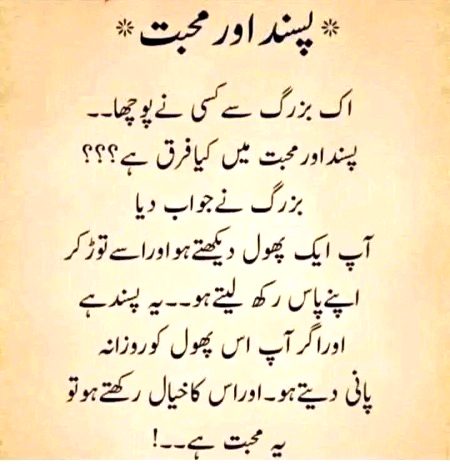 * پسند اور محبت *
اک بزرگ سے کسی نے پوچھا۔۔
پسند اور محبت میں کیا فرق ہے؟؟؟
بزرگ نے جواب دیا
آپ ایک پھول دیکھتے ہو اور اسے توڑ کر
اپنے پاس رکھ لیتے ہو۔۔یہ پسند ہے
اور اگر آپ اس پھول کو روزانہ
پانی دیتے ہو۔اور اس کا خیال رکھتے ہو تو
یہ محبت ہے۔۔!